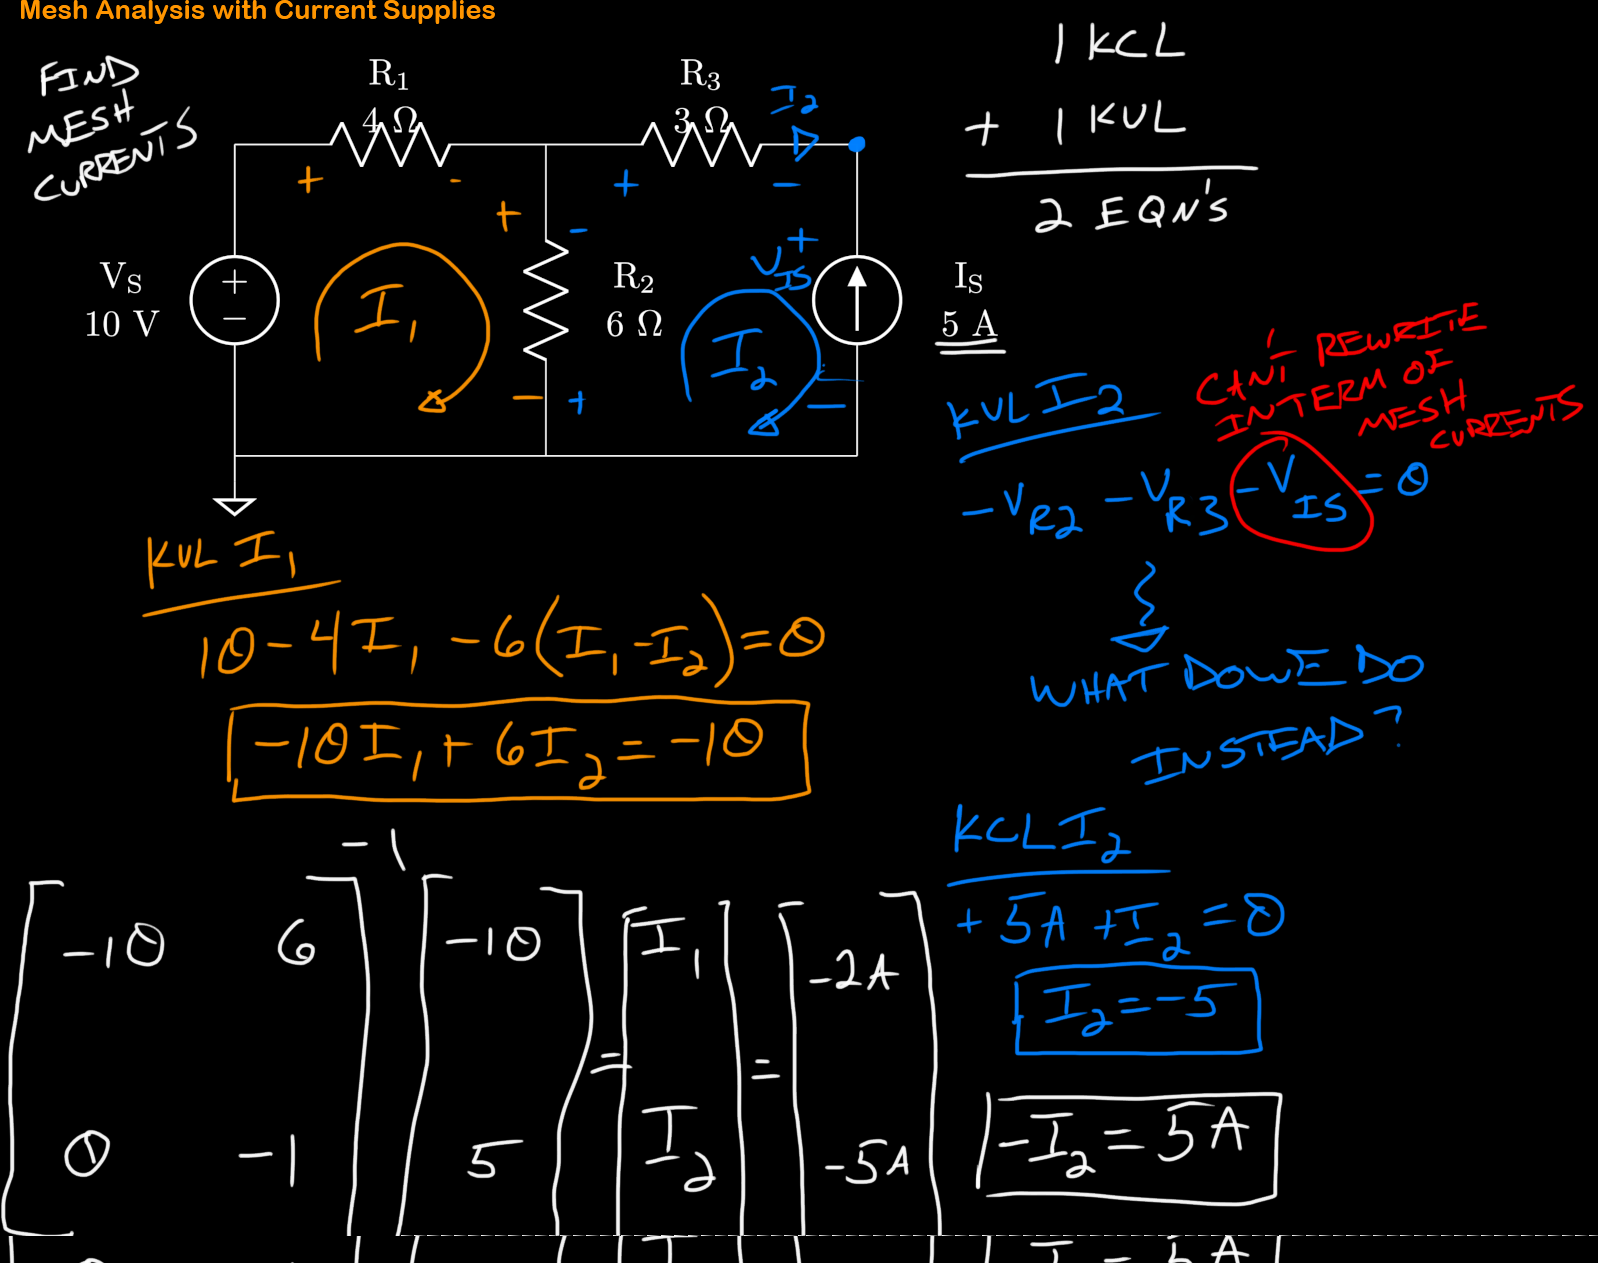 Mesh Analysis with Current Supplies
FIND
MESH
CURRENTS
1 KCL
+ 1 KVL
2 EQN'S
R1
4 Ω
R3
3 Ω
I2
+ -
+ -
+ -
VS
10 V
+
−
I1
R2
6 Ω
- +
VIS
+
−
I2
IS
5 A
KVL I2
CAN'T REWRITE
IN TERM OF
MESH
CURRENTS
-VR2 -VR3 -VIS = 0
WHAT DO WE DO
INSTEAD?
KVL I1
10 - 4I1 - 6(I1 - I2) = 0
-10I1 + 6I2 = -10
KCL I2
+ 5A + I2 = 0
I2 = -5
-I2 = 5A
[-10 6
0 -1]-1
[-10
5]
=
[I1
I2]
=
[-2A
-5A]